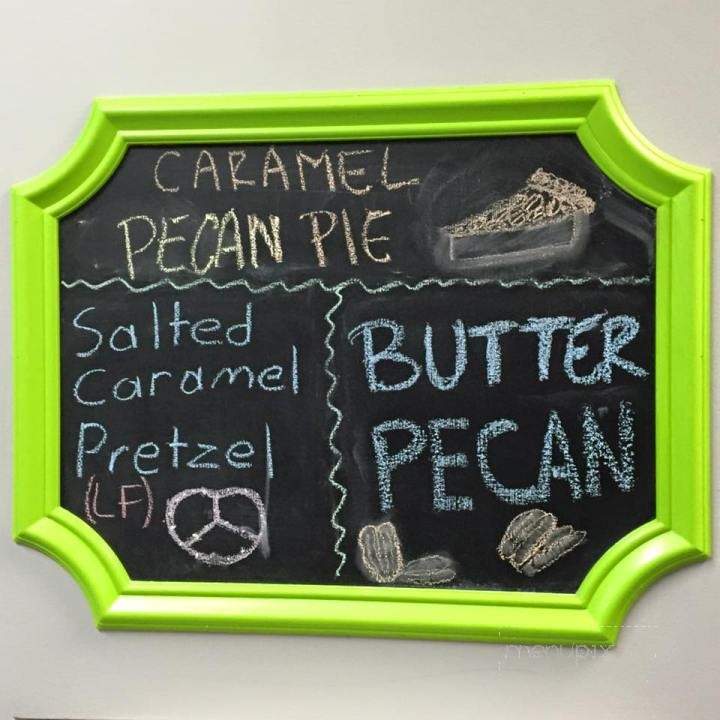 CARAMEL
PECAN PIE
Salted
Caramel
Pretzel
(LF)
BUTTER
PECAN
menupix